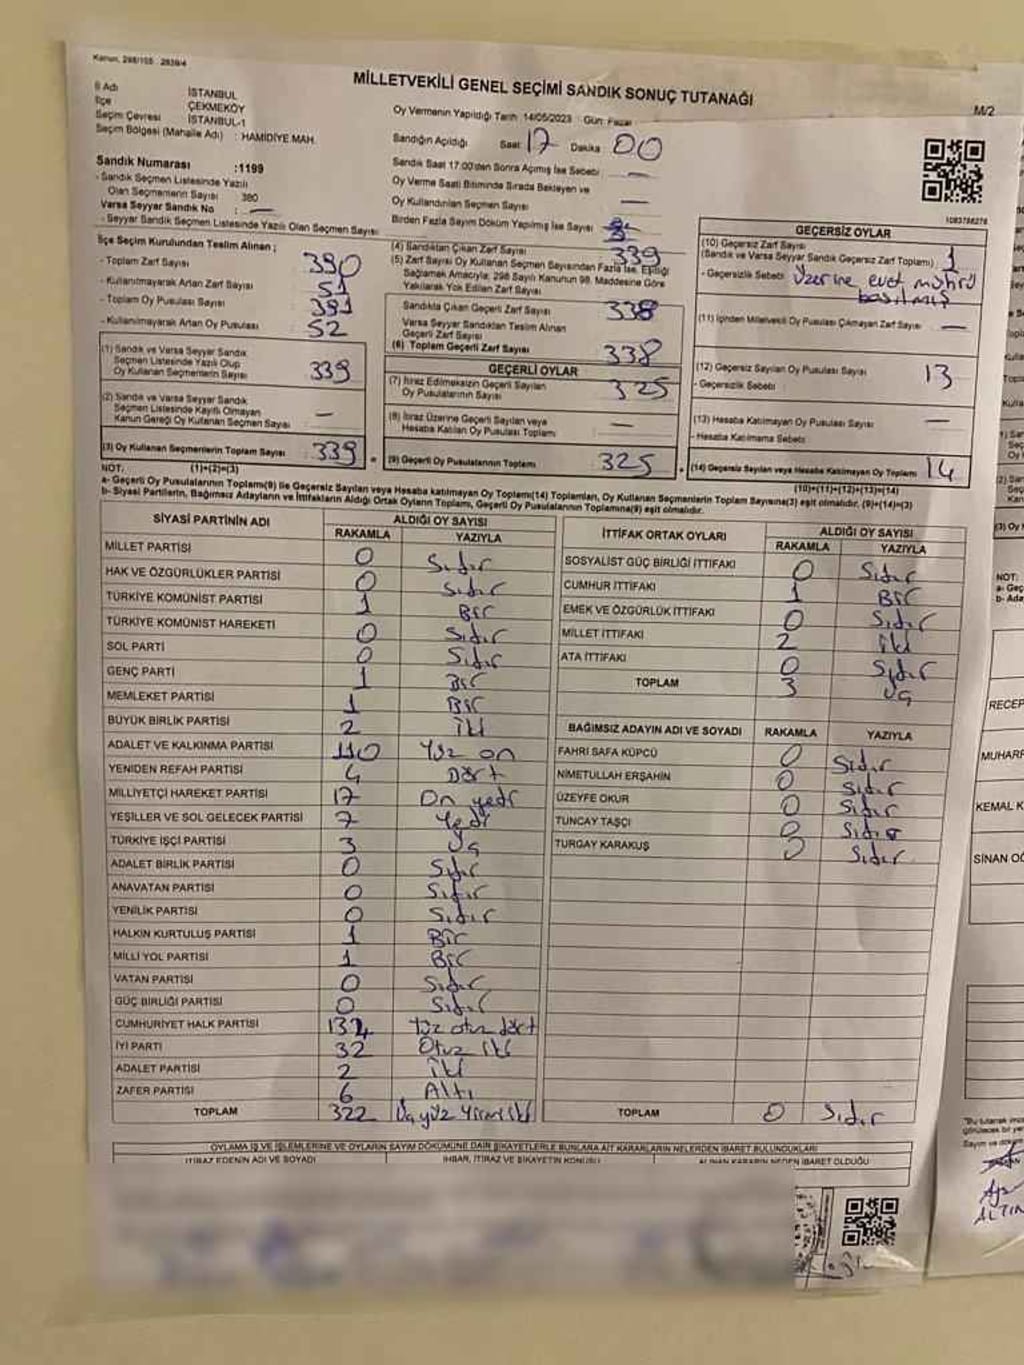 Kanun, 298/105 2839/4
MİLLETVEKİLİ GENEL SEÇİMİ SANDIK SONUÇ TUTANAĞI
M/2
İl Adı İSTANBUL
İlçe ÇEKMEKÖY
Seçim Çevresi İSTANBUL-1
Seçim Bölgesi (Mahalle Adı) : HAMİDİYE MAH.
Sandık Numarası :1199
- Sandık Seçmen Listesinde Yazılı
Olan Seçmenlerin Sayısı 380
Varsa Seyyar Sandık No : —
- Seyyar Sandık Seçmen Listesinde Yazılı Olan Seçmen Sayısı
Oy Vermenin Yapıldığı Tarih 14/05/2023 Gün: Pazar
Sandığın Açıldığı Saat 17 Dakika 00
Sandık Saat 17:00'den Sonra Açılmış İse Sebebi —
Oy Verme Saati Bitiminde Sırada Bekleyen ve
Oy Kullandırılan Seçmen Sayısı —
Birden Fazla Sayım Döküm Yapılmış İse Sayısı
1083786276
İlçe Seçim Kurulundan Teslim Alınan ;
- Toplam Zarf Sayısı 390
- Kullanılmayarak Artan Zarf Sayısı 51
- Toplam Oy Pusulası Sayısı 391
- Kullanılmayarak Artan Oy Pusulası 52
(1) Sandık ve Varsa Seyyar Sandık
Seçmen Listesinde Yazılı Olup
Oy Kullanan Seçmenlerin Sayısı 339
(2) Sandık ve Varsa Seyyar Sandık
Seçmen Listesinde Kayıtlı Olmayan
Kanun Gereği Oy Kullanan Seçmen Sayısı —
(3) Oy Kullanan Seçmenlerin Toplam Sayısı 339
(1)+(2)=(3)
(4) Sandıktan Çıkan Zarf Sayısı 339
(5) Zarf Sayısı Oy Kullanan Seçmen Sayısından Fazla İse, Eşitliği
Sağlamak Amacıyla; 298 Sayılı Kanunun 98. Maddesine Göre
Yakılarak Yok Edilen Zarf Sayısı
Sandıkta Çıkan Geçerli Zarf Sayısı 338
Varsa Seyyar Sandıktan Teslim Alınan
Geçerli Zarf Sayısı
(6) Toplam Geçerli Zarf Sayısı 338
GEÇERLİ OYLAR
(7) İtiraz Edilmeksizin Geçerli Sayılan
Oy Pusulalarının Sayısı 325
(8) İtiraz Üzerine Geçerli Sayılan veya
Hesaba Katılan Oy Pusulası Toplamı —
(9) Geçerli Oy Pusulalarının Toplamı 325
GEÇERSİZ OYLAR
(10) Geçersiz Zarf Sayısı
(Sandık ve Varsa Seyyar Sandık Geçersiz Zarf Toplamı) 1
- Geçersizlik Sebebi Üzerine evet mührü
basılmış
(11) İçinden Milletvekili Oy Pusulası Çıkmayan Zarf Sayısı —
(12) Geçersiz Sayılan Oy Pusulası Sayısı 13
- Geçersizlik Sebebi :
(13) Hesaba Katılmayan Oy Pusulası Sayısı —
- Hesaba Katılmama Sebebi
(14) Geçersiz Sayılan veya Hesaba Katılmayan Oy Toplamı 14
(10)+(11)+(12)+(13)=(14)
NOT:
a- Geçerli Oy Pusulalarının Toplamı(9) ile Geçersiz Sayılan veya Hesaba katılmayan Oy Toplamı(14) Toplamları, Oy Kullanan Seçmenlerin Toplam Sayısına(3) eşit olmalıdır. (9)+(14)=(3)
b- Siyasi Partilerin, Bağımsız Adayların ve İttifakların Aldığı Ortak Oyların Toplamı, Geçerli Oy Pusulalarının Toplamına(9) eşit olmalıdır.
SİYASİ PARTİNİN ADI ALDIĞI OY SAYISI
RAKAMLA YAZIYLA
MİLLET PARTİSİ 0 Sıfır
HAK VE ÖZGÜRLÜKLER PARTİSİ 0 Sıfır
TÜRKİYE KOMÜNİST PARTİSİ 1 Bir
TÜRKİYE KOMÜNİST HAREKETİ 0 Sıfır
SOL PARTİ 0 Sıfır
GENÇ PARTİ 1 Bir
MEMLEKET PARTİSİ 1 Bir
BÜYÜK BİRLİK PARTİSİ 2 İki
ADALET VE KALKINMA PARTİSİ 110 Yüz on
YENİDEN REFAH PARTİSİ 4 Dört
MİLLİYETÇİ HAREKET PARTİSİ 17 On yedi
YEŞİLLER VE SOL GELECEK PARTİSİ 7 Yedi
TÜRKİYE İŞÇİ PARTİSİ 3 Üç
ADALET BİRLİK PARTİSİ 0 Sıfır
ANAVATAN PARTİSİ 0 Sıfır
YENİLİK PARTİSİ 0 Sıfır
HALKIN KURTULUŞ PARTİSİ 1 Bir
MİLLİ YOL PARTİSİ 1 Bir
VATAN PARTİSİ 0 Sıfır
GÜÇ BİRLİĞİ PARTİSİ 0 Sıfır
CUMHURİYET HALK PARTİSİ 134 Yüz otuz dört
İYİ PARTİ 32 Otuz iki
ADALET PARTİSİ 2 İki
ZAFER PARTİSİ 6 Altı
TOPLAM 322 Üç yüz Yirmi iki
İTTİFAK ORTAK OYLARI ALDIĞI OY SAYISI
RAKAMLA YAZIYLA
SOSYALİST GÜÇ BİRLİĞİ İTTİFAKI 0 Sıfır
CUMHUR İTTİFAKI 1 Bir
EMEK VE ÖZGÜRLÜK İTTİFAKI 0 Sıfır
MİLLET İTTİFAKI 2 İki
ATA İTTİFAKI 0 Sıfır
TOPLAM 3 Üç
BAĞIMSIZ ADAYIN ADI VE SOYADI RAKAMLA YAZIYLA
FAHRİ SAFA KÜPCÜ 0 Sıfır
NİMETULLAH ERŞAHİN 0 Sıfır
ÜZEYFE OKUR 0 Sıfır
TUNCAY TAŞÇI 0 Sıfır
TURGAY KARAKUŞ 0 Sıfır
TOPLAM 0 Sıfır
OYLAMA İŞ VE İŞLEMLERİNE VE OYLARIN SAYIM DÖKÜMÜNE DAİR ŞİKAYETLERLE BUNLARA AİT KARARLARIN NELERDEN İBARET BULUNDUKLARI
İTİRAZ EDENİN ADI VE SOYADI İHBAR, İTİRAZ VE ŞİKAYETİN KONUSU ALINAN KARARIN NEDEN İBARET OLDUĞU
NOT:
a- Geç
b- Ada
RECEP
MUHARR
KEMAL K
SİNAN OĞ
ALTIN